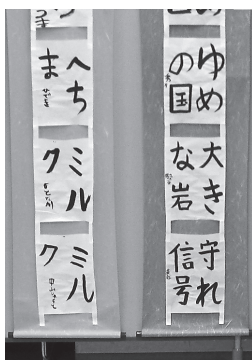 ゆめ
の国
大き
な岩
守れ
信号
へち
ま
ミル
ク
ミル
ク